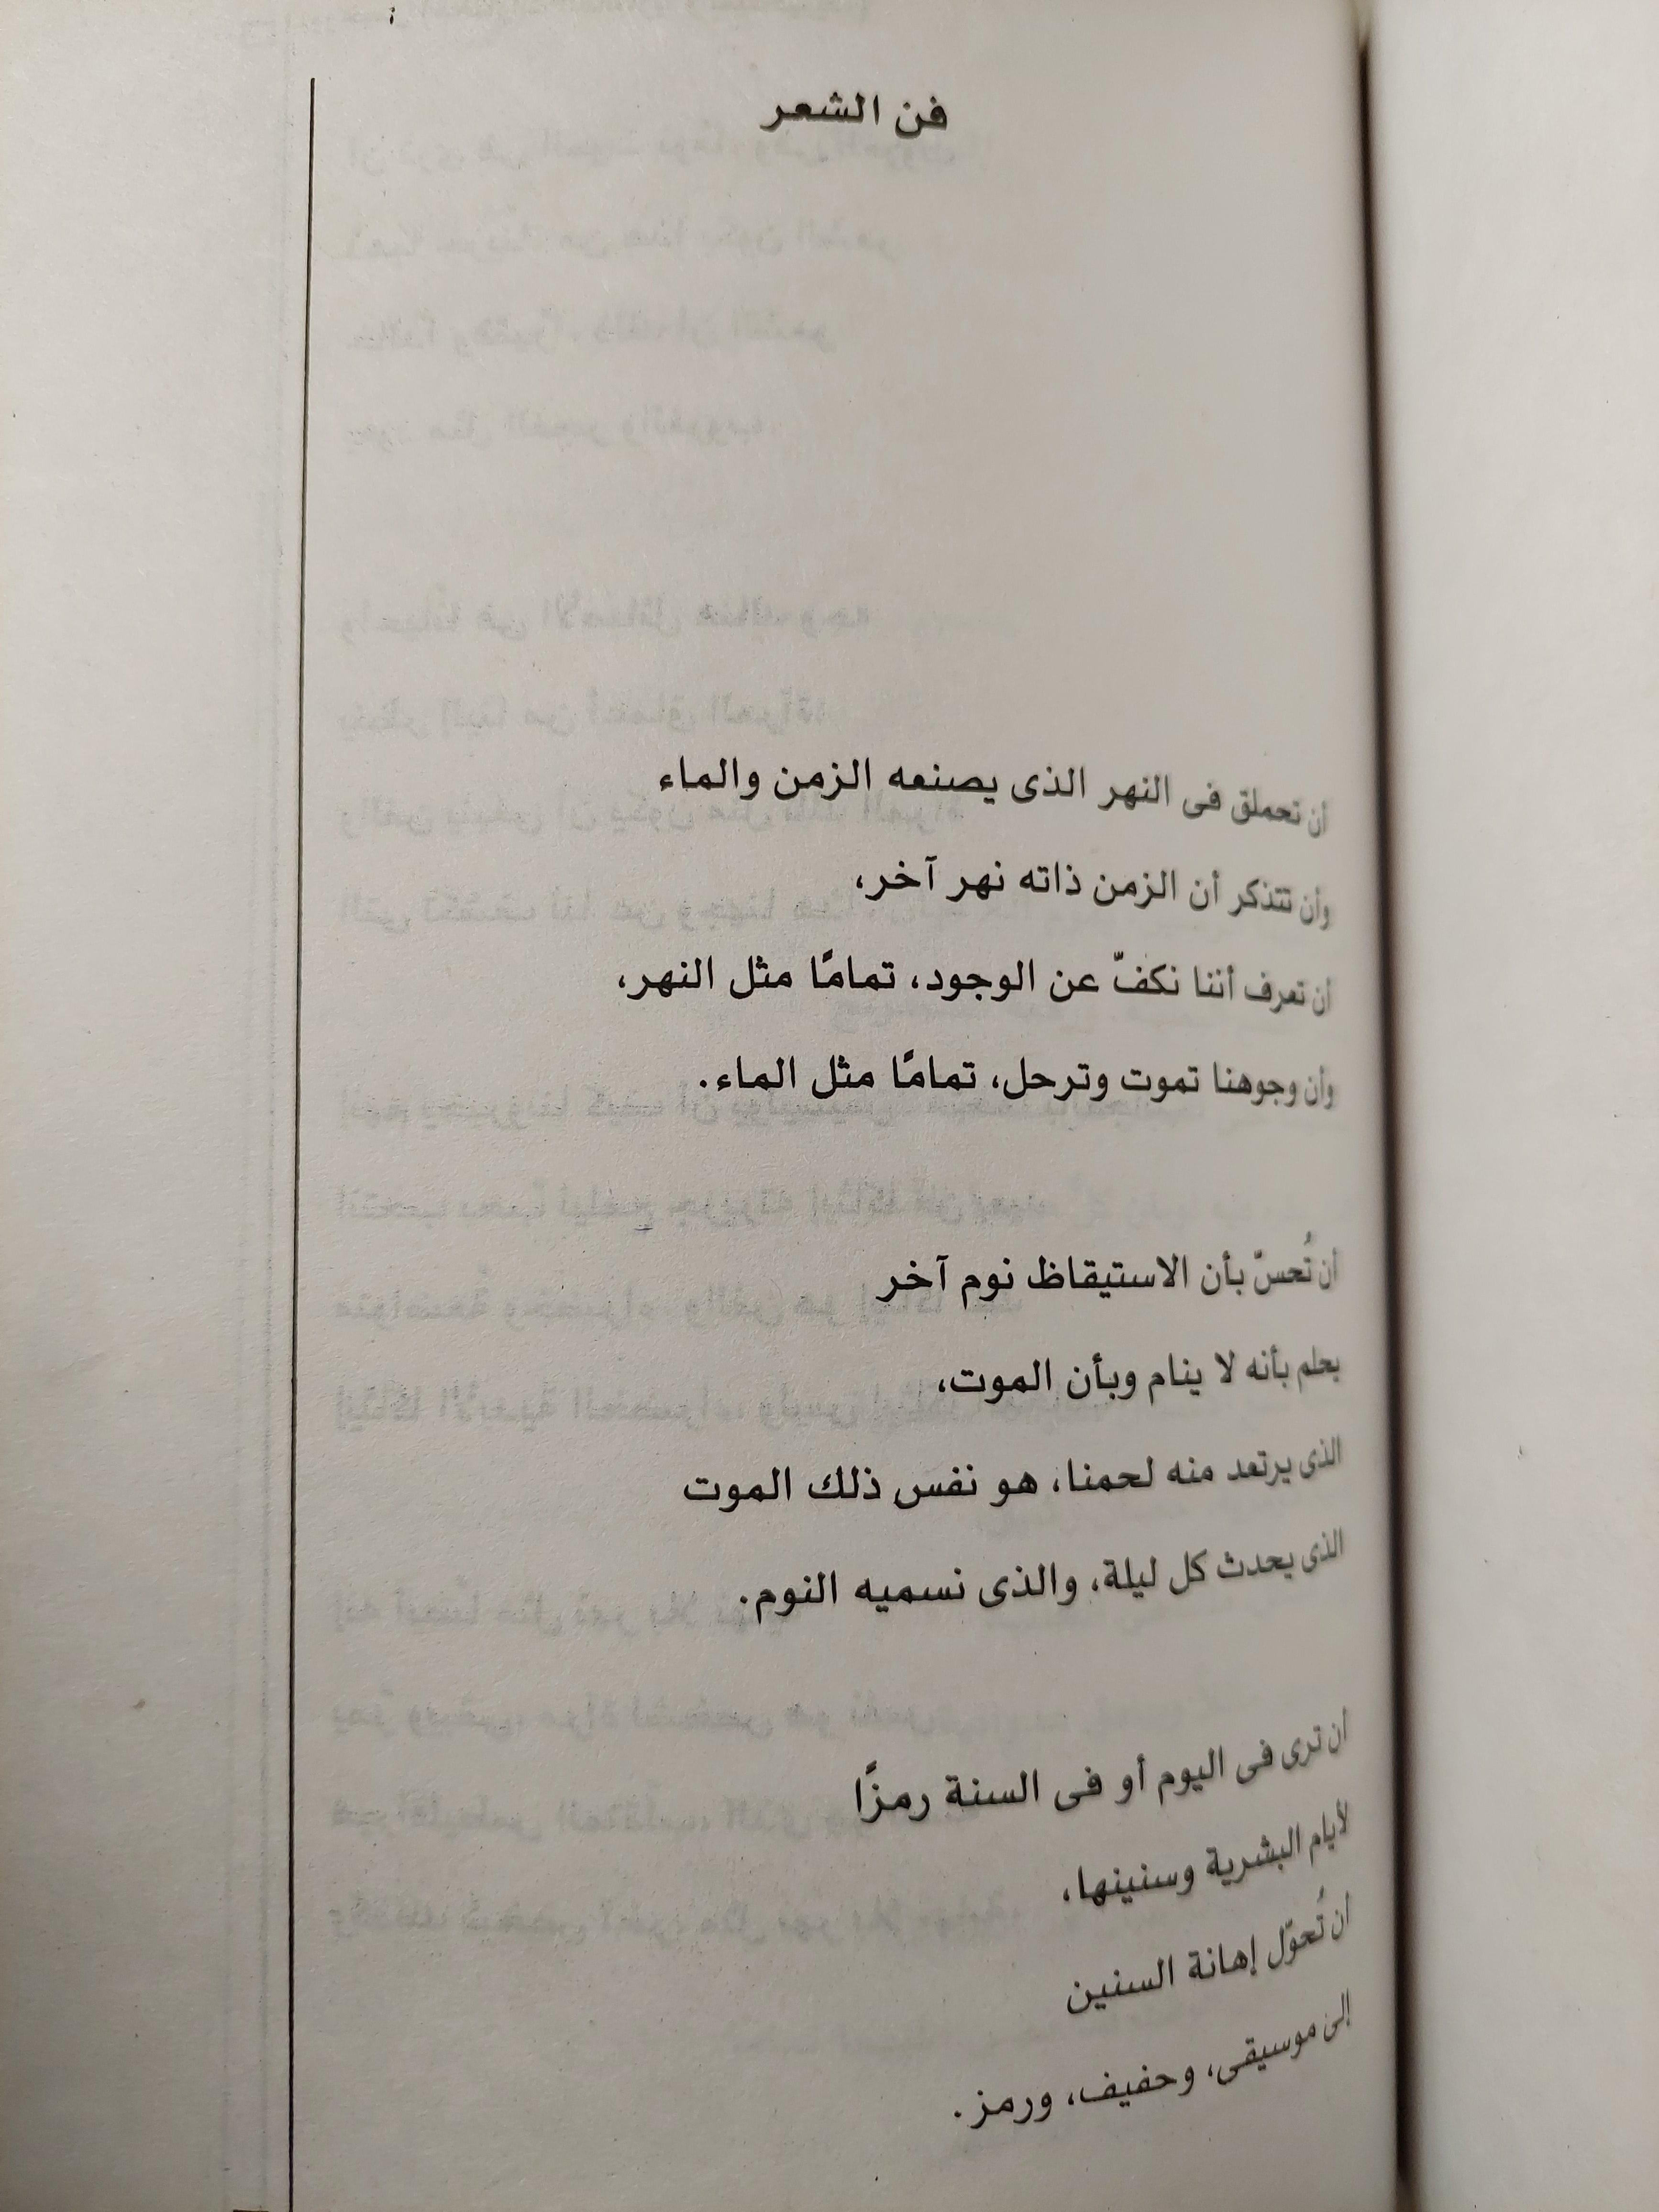 فن الشعر
أن تحملق فى النهر الذى يصنعه الزمن والماء
وأن تتذكر أن الزمن ذاته نهر آخر،
أن تعرف أننا نكفّ عن الوجود، تمامًا مثل النهر،
وأن وجوهنا تموت وترحل، تمامًا مثل الماء.
أن تُحسّ بأن الاستيقاظ نوم آخر
يحلم بأنه لا ينام وبأن الموت،
الذى يرتعد منه لحمنا، هو نفس ذلك الموت
الذى يحدث كل ليلة، والذى نسميه النوم.
أن ترى فى اليوم أو فى السنة رمزًا
لأيام البشرية وسنينها،
أن تُحوّل إهانة السنين
إلى موسيقى، وحفيف، ورمز.